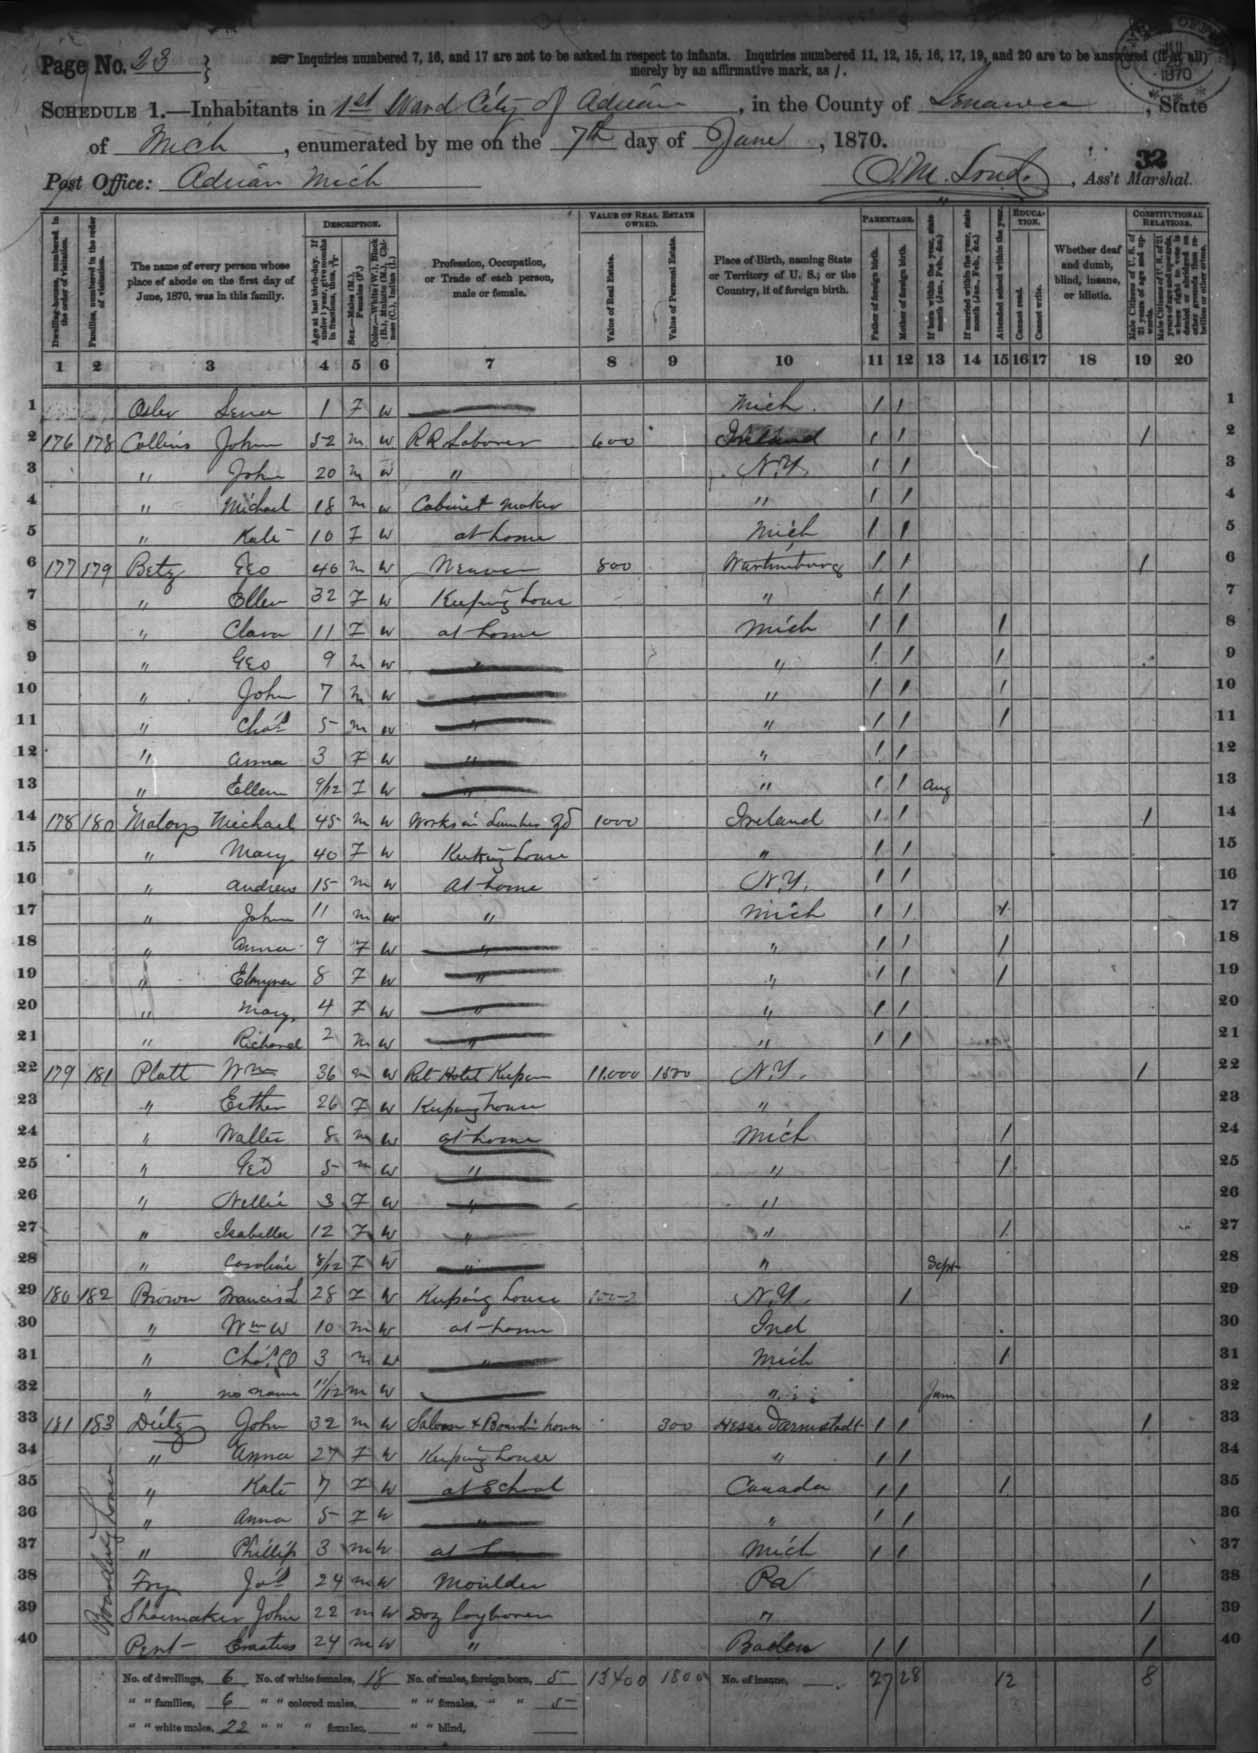 Page No. 23
Inquiries numbered 7, 16, and 17 are not to be asked in respect to infants. Inquiries numbered 11, 12, 15, 16, 17, 19, and 20 are to be answered (if at all)
merely by an affirmative mark, as /.
1870
SCHEDULE 1.—Inhabitants in 1st Ward City of Adrian, in the County of Lenawee, State
of Mich, enumerated by me on the 7th day of June, 1870.
32
Post Office: Adrian Mich , Ass't Marshal.
Dwelling-houses, numbered in the order of visitation.
Families, numbered in the order of visitation.
The name of every person whose place of abode on the first day of June, 1870, was in this family.
DESCRIPTION.
Age at last birth-day. If under 1 year, give months in fractions, thus, 3/12
Sex.—Males (M.), Females (F.)
Color.—White (W.), Black (B.), Mulatto (M.), Chinese (C.), Indian (I.)
Profession, Occupation, or Trade of each person, male or female.
VALUE OF REAL ESTATE OWNED.
Value of Real Estate.
Value of Personal Estate.
Place of Birth, naming State or Territory of U. S.; or the Country, if of foreign birth.
PARENTAGE.
Father of foreign birth.
Mother of foreign birth.
If born within the year, state month (Jan., Feb., &c.)
If married within the year, state month (Jan., Feb., &c.)
Attended school within the year.
EDUCATION.
Cannot read.
Cannot write.
Whether deaf and dumb, blind, insane, or idiotic.
CONSTITUTIONAL RELATIONS.
Male Citizens of U. S. of 21 years of age and upwards.
1 2 3 4 5 6 7 8 9 10 11 12 13 14 15 16 17 18 19 20
1 Lena 1 F W Mich / / 1
2 176 178 Collins John 52 M W R R Laborer 600 Ireland / / / 2
3 " John 20 M W " N.Y. / / 3
4 " Michael 18 M W Cabinet maker " / / 4
5 " Kate 10 F W at home Mich / / 5
6 177 179 Betz Geo 40 M W Weaver 800 Wurtemburg / / / 6
7 " Ellen 32 F W Keeping house " / / 7
8 " Clara 11 F W at home Mich / / / 8
9 " Geo 9 M W " " / / / 9
10 " John 7 M W " " / / / 10
11 " Chas 5 M W " " / / / 11
12 " Anna 3 F W " " / / 12
13 " Ellen 9/12 F W " " / / Aug 13
14 178 180 Maloy Michael 45 M W Works in Lumber Yd 1000 Ireland / / / 14
15 " Mary 40 F W Keeping house " / / 15
16 " Andrew 15 M W At home N.Y. / / 16
17 " John 11 M W " Mich / / / 17
18 " Anna 9 F W " " / / / 18
19 " 8 F W " " / / / 19
20 " Mary 4 F W " " / / 20
21 " Richard 2 M W " " / / 21
22 179 181 Platt Wm 36 M W Ret Hotel Keeper 11000 1500 N.Y. / 22
23 " Esther 26 F W Keeping house " 23
24 " Walter 8 M W at home Mich / 24
25 " Geo 5 M W " " / 25
26 " Nellie 3 F W " " 26
27 " Isabella 12 F W " " / 27
28 " Caroline 8/12 F W " " Sept 28
29 180 182 Brown Francis L 28 F W Keeping house N.Y. / 29
30 " Wm W 10 M W at home Ind 30
31 " Chas O 3 M W " Mich / 31
32 " no name 11/12 M W " Jan 32
33 181 183 Dietz John 32 M W Saloon & Boardin house 300 Hesse Darmstadt / / / 33
34 " Anna 27 F W Keeping house " / / 34
35 " Kate 7 F W at School Canada / / / 35
36 " Anna 5 F W " " / / 36
37 " Phillip 3 M W at Mich / / 37
38 Fry Jas 24 M W Moulder Pa / 38
39 Shoemaker John 22 M W " / 39
40 Pent Erastus 24 M W " Baden / / / 40
Boarding house
No. of dwellings, 6 No. of white females, 18 No. of males, foreign born, 5 13400 1800 No. of insane, 27 28 12 8
" " families, 6 " " colored males, " " females, " " 5
" " white males, 22 " " " females, " " blind,